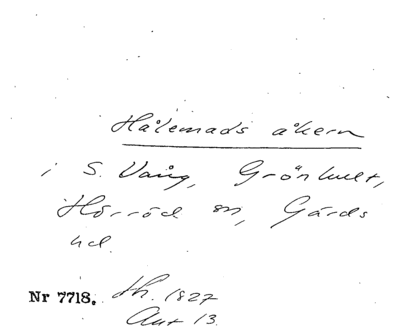 Hålemads åkern
i S. Vång, Grönhult,
Hörröd sn, Gärds
hd.
Nr 7718. Sh. 1827
Akt 13.